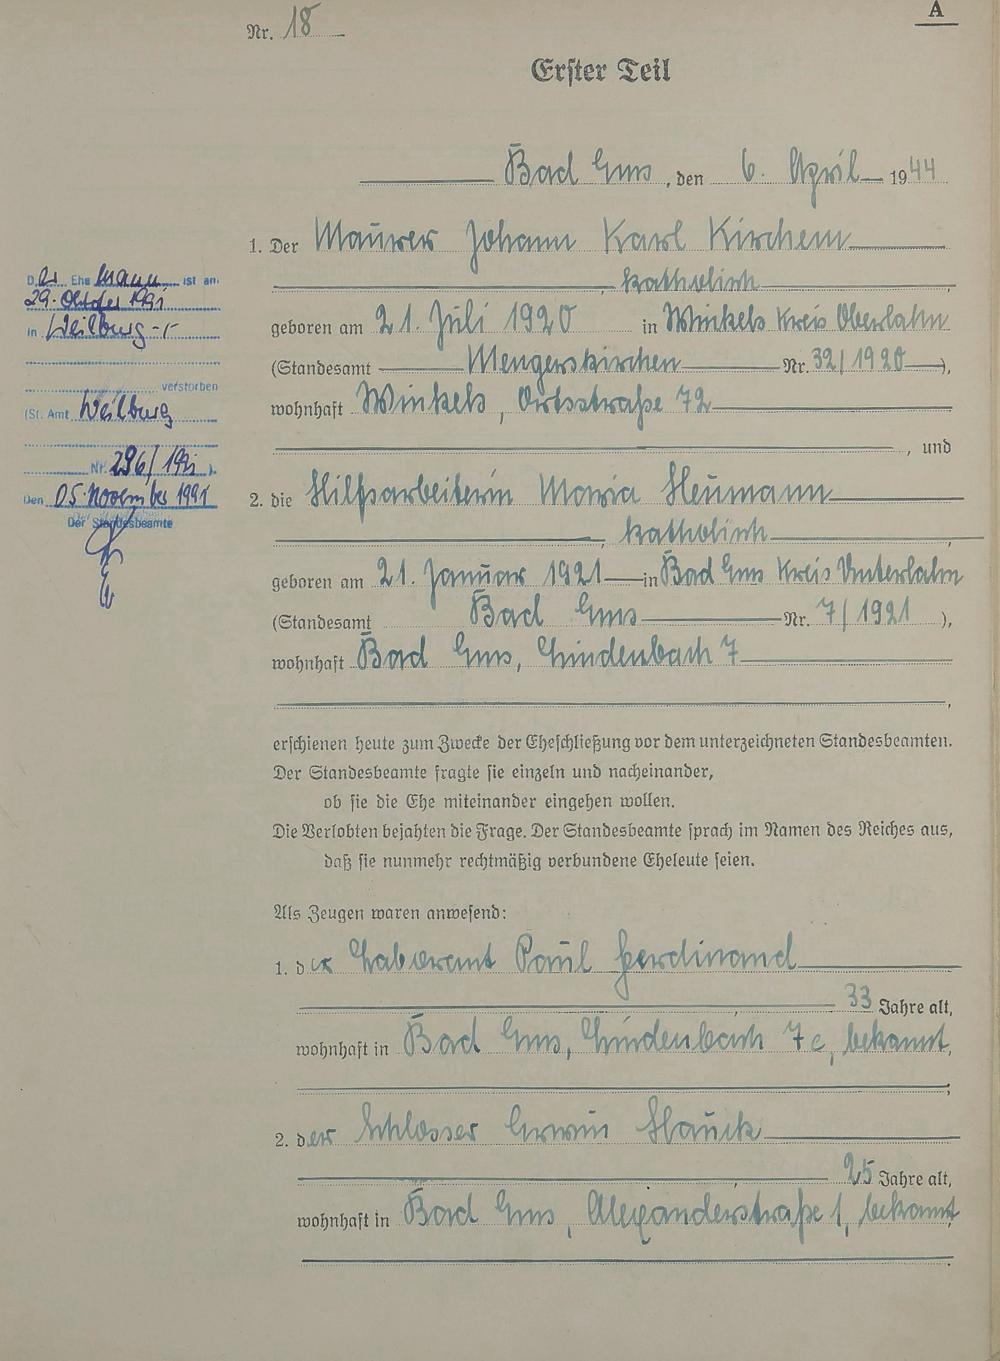 A
Nr. 18
Erster Teil
Bad Ems, den 6. April 1944
1. Der Maurer Johann Karl Kirchem
, katholisch,
geboren am 21. Juli 1920 in Winkels Kreis Oberlahn
(Standesamt Mengerskirchen Nr. 32/1920),
wohnhaft Winkels, Ortsstraße 72
, und
2. die Hilfsarbeiterin Maria Heumann
, katholisch,
geboren am 21. Januar 1921 in Bad Ems Kreis Unterlahn
(Standesamt Bad Ems Nr. 7/1921),
wohnhaft Bad Ems, Lindenbach 7
,
erschienen heute zum Zwecke der Eheschließung vor dem unterzeichneten Standesbeamten.
Der Standesbeamte fragte sie einzeln und nacheinander,
ob sie die Ehe miteinander eingehen wollen.
Die Verlobten bejahten die Frage. Der Standesbeamte sprach im Namen des Reiches aus,
daß sie nunmehr rechtmäßig verbundene Eheleute seien.
Als Zeugen waren anwesend:
1. der Laborant Paul Ferdinand
33 Jahre alt,
wohnhaft in Bad Ems, Lindenbach 7c, bekannt,
;
2. der Schlosser Erwin Hauck
25 Jahre alt,
wohnhaft in Bad Ems, Alexanderstraße 1, bekannt,
.
Der Ehe Mann ist am
29. Oktober 1991
in Weilburg
verstorben
(St. Amt Weilburg
Nr. 296/1991).
Den 05. November 1991
Der Standesbeamte